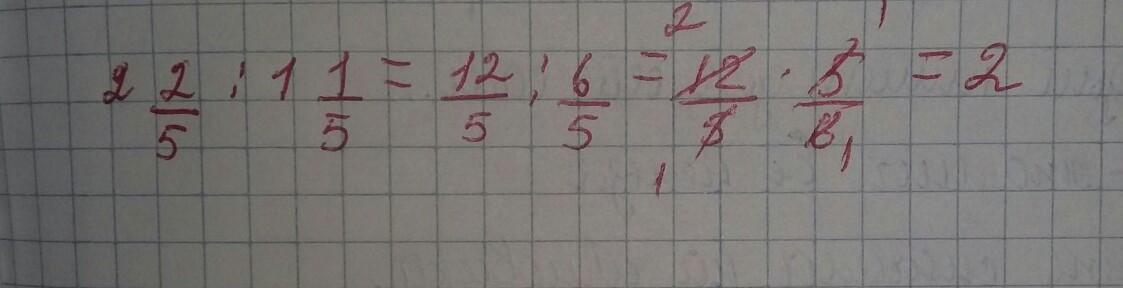 2 2/5 : 1 1/5 = 12/5 : 6/5 = 12/5 · 5/6 = 2